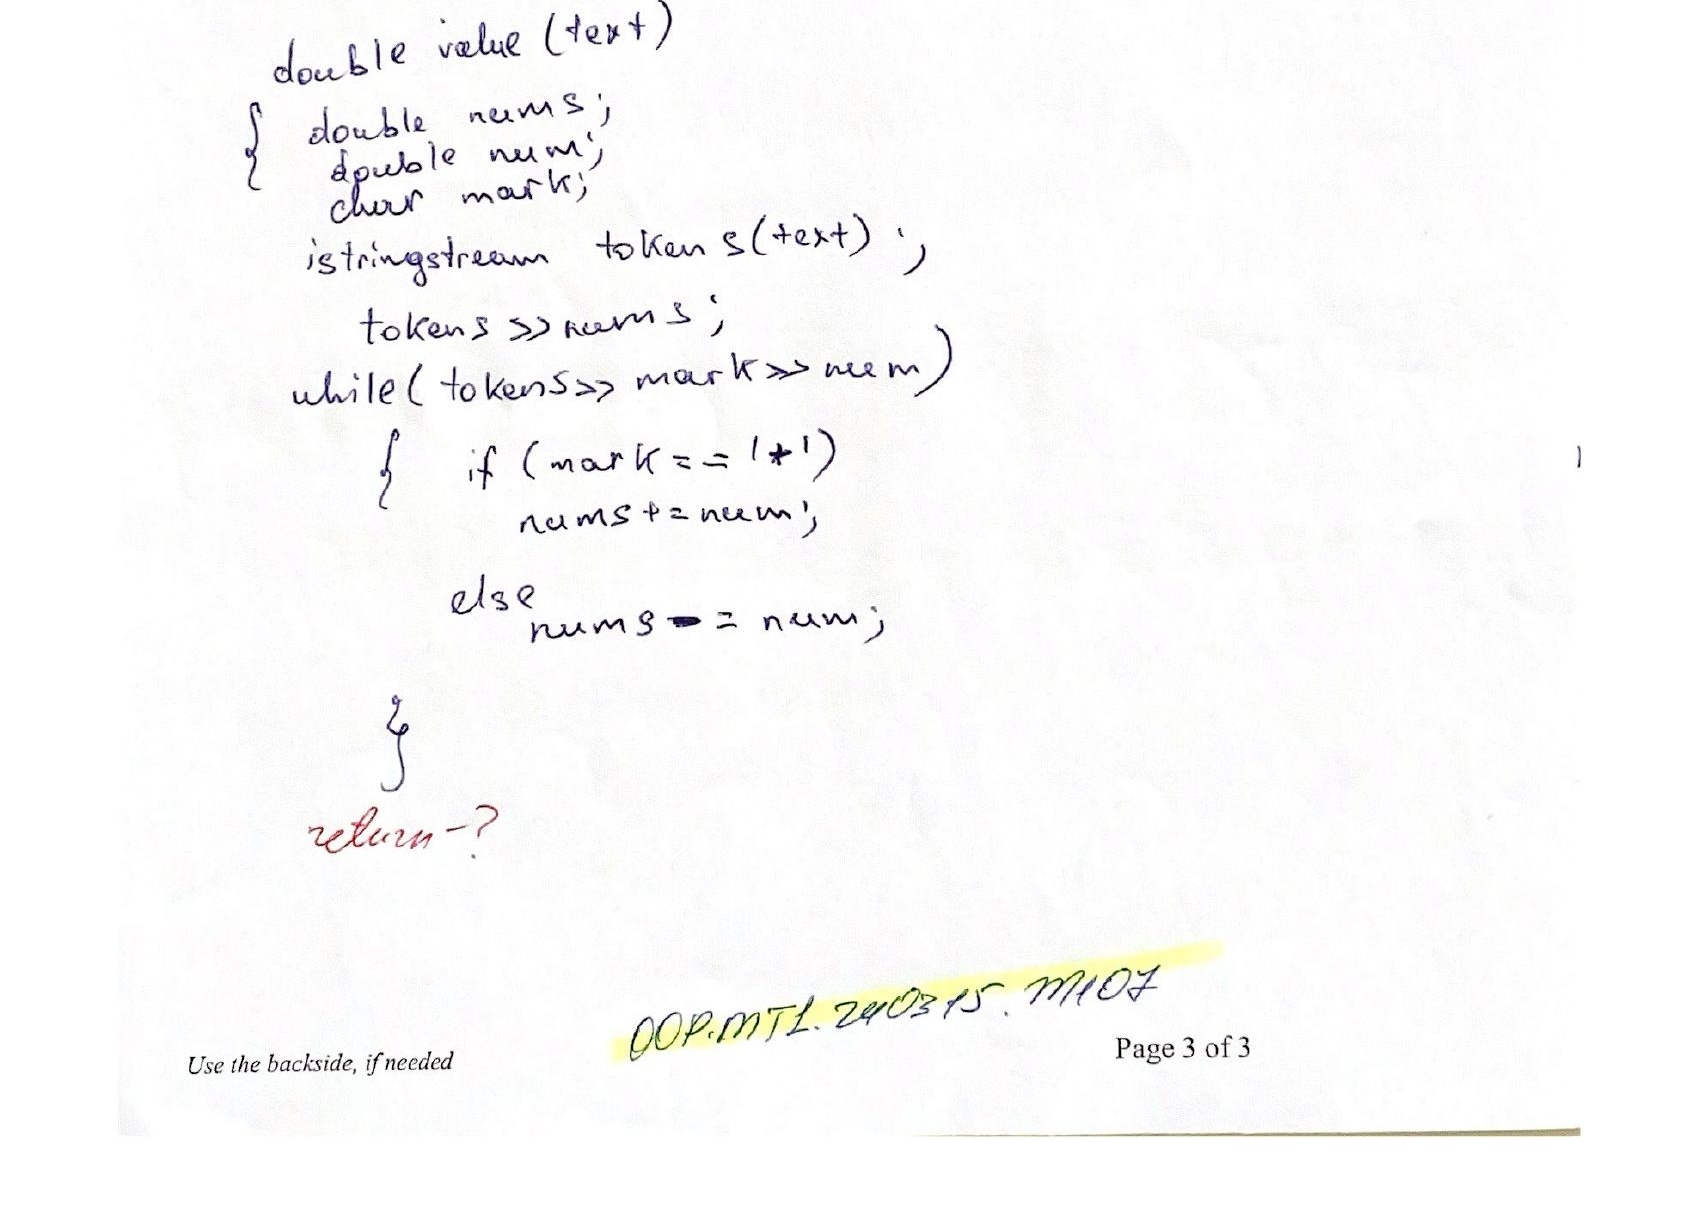 double value (text)
{ double nums;
double num;
char mark;
istringstream tokens(text);
tokens >> nums;
while( tokens>> mark>> num)
{ if (mark == '+')
nums += num;
else
nums -= num;
}
return-?
OOP.MT1.240315.M107
Use the backside, if needed
Page 3 of 3